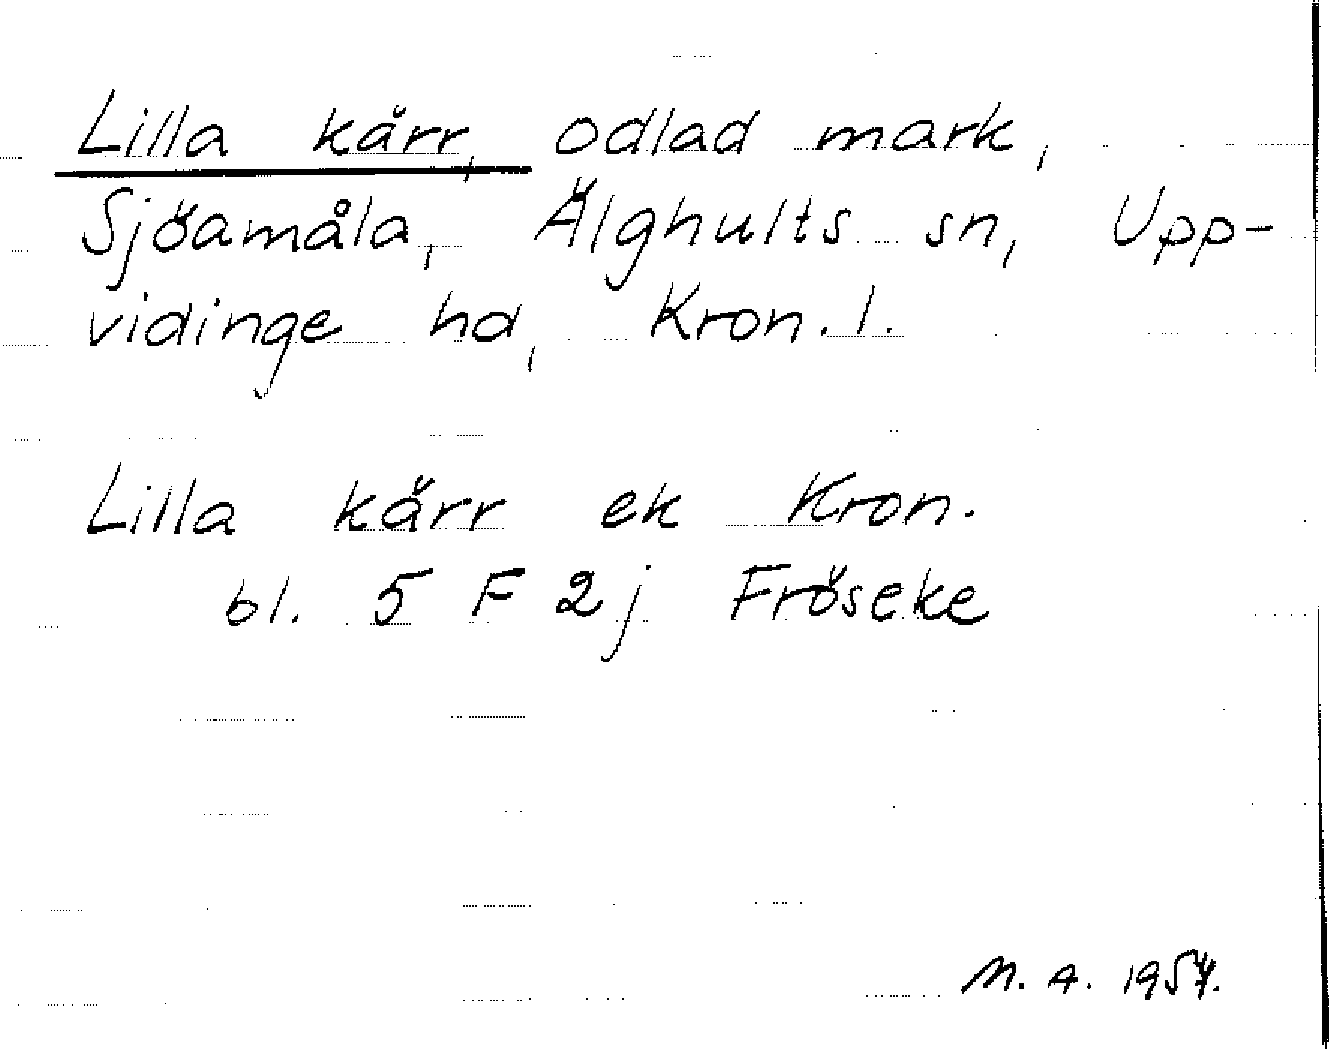 Lilla kärr, odlad mark,
Sjöamåla, Älghults sn, Upp-
vidinge hd, Kron. l.
Lilla kärr ek Kron.
bl. 5 F 2j Fröseke
M. A. 1957.